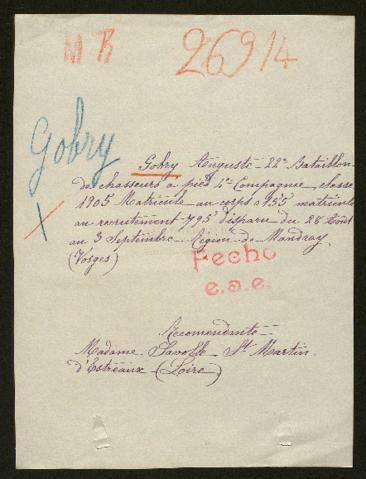 M R
26914
Gobry
Gobry Auguste - 22e Bataillon
de chasseurs à pied 4e Compagnie classe
1905 Matricule au corps 0955 matricule
au recrutement 795 disparu du 28 Août
au 3 Septembre - Région de Mandray
(Vosges)
Fecho
e.a.e.
Recomendante
Madame St Martin
d'Estreaux (Loire)